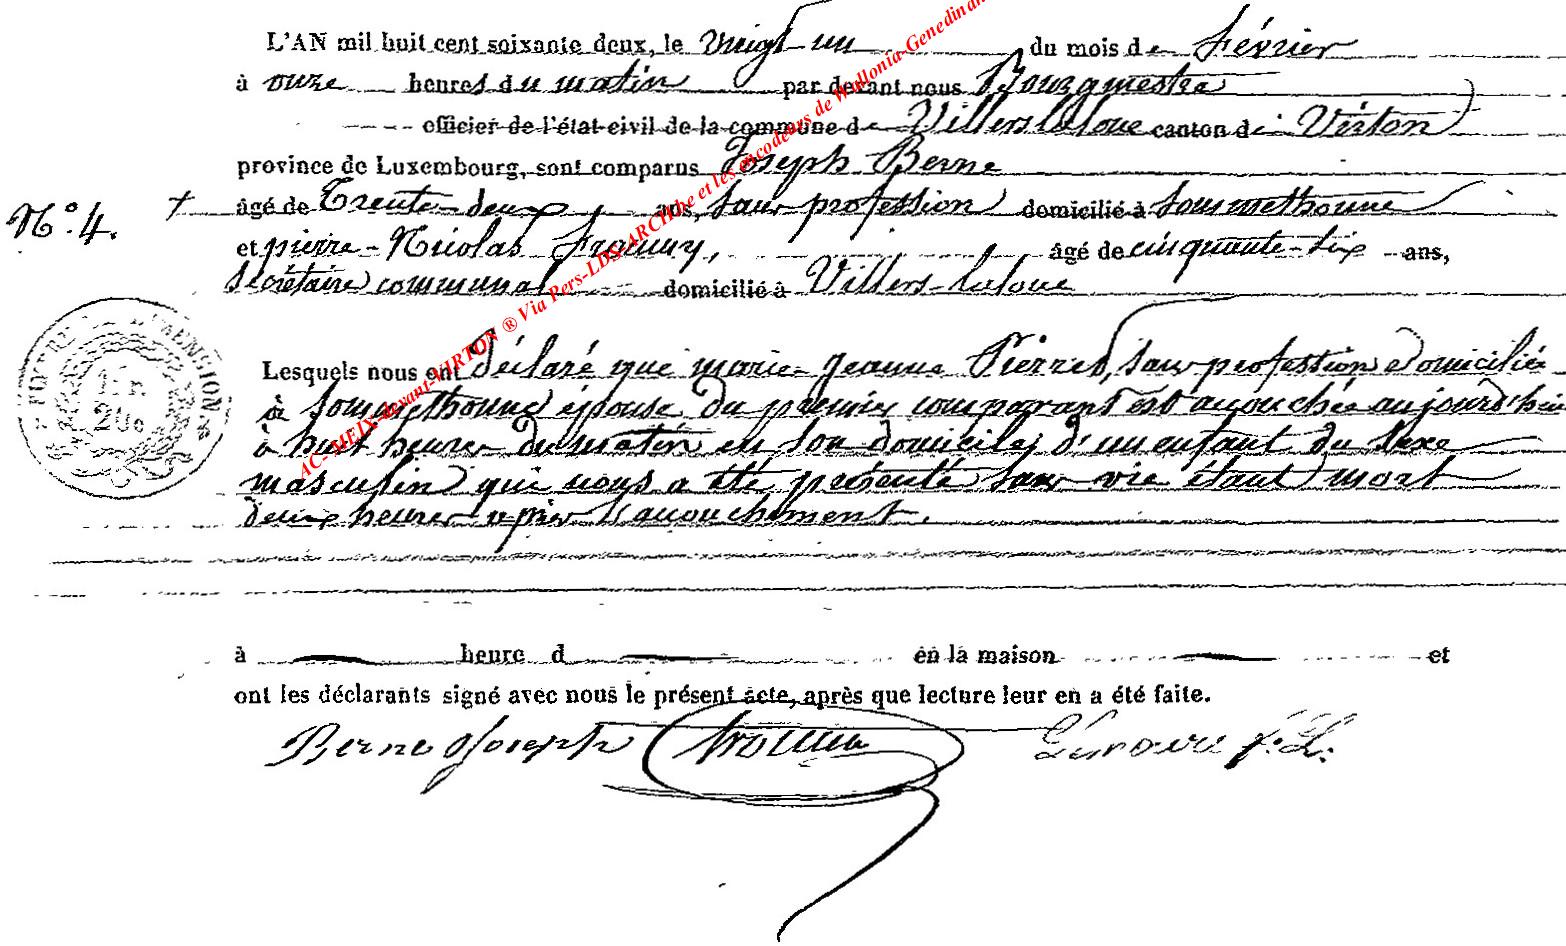 L'AN mil huit cent soixante deux, le vingt un du mois de Février
à onze heures du matin par devant nous Bourgmestre
officier de l'état civil de la commune de Villers laloue canton de Virton
province de Luxembourg, sont comparus Joseph Berne
N.o 4. + âgé de Trente-deux ans, sans profession domicilié à Sommethonne
et pierre-Nicolas âgé de cinquante-six ans,
Secrétaire communal domicilié à Villers-laloue
Lesquels nous ont Déclaré que marie-jeanne Pierret, sans profession domiciliée
à Sommethonne épouse du premier comparant est accouchée aujourd'hui
à huit heures du matin en son domicile, d'un enfant du sexe
masculin qui nous a été présenté sans vie étant mort
deux heures après l'accouchement.
à heure d en la maison et
ont les déclarants signé avec nous le présent acte, après que lecture leur en a été faite.
Berne Joseph
AC-MEIX-devant-VIRTON ® Via Pers-LDS-ARCHbe et les encodeurs de Wallonia-Genedinan